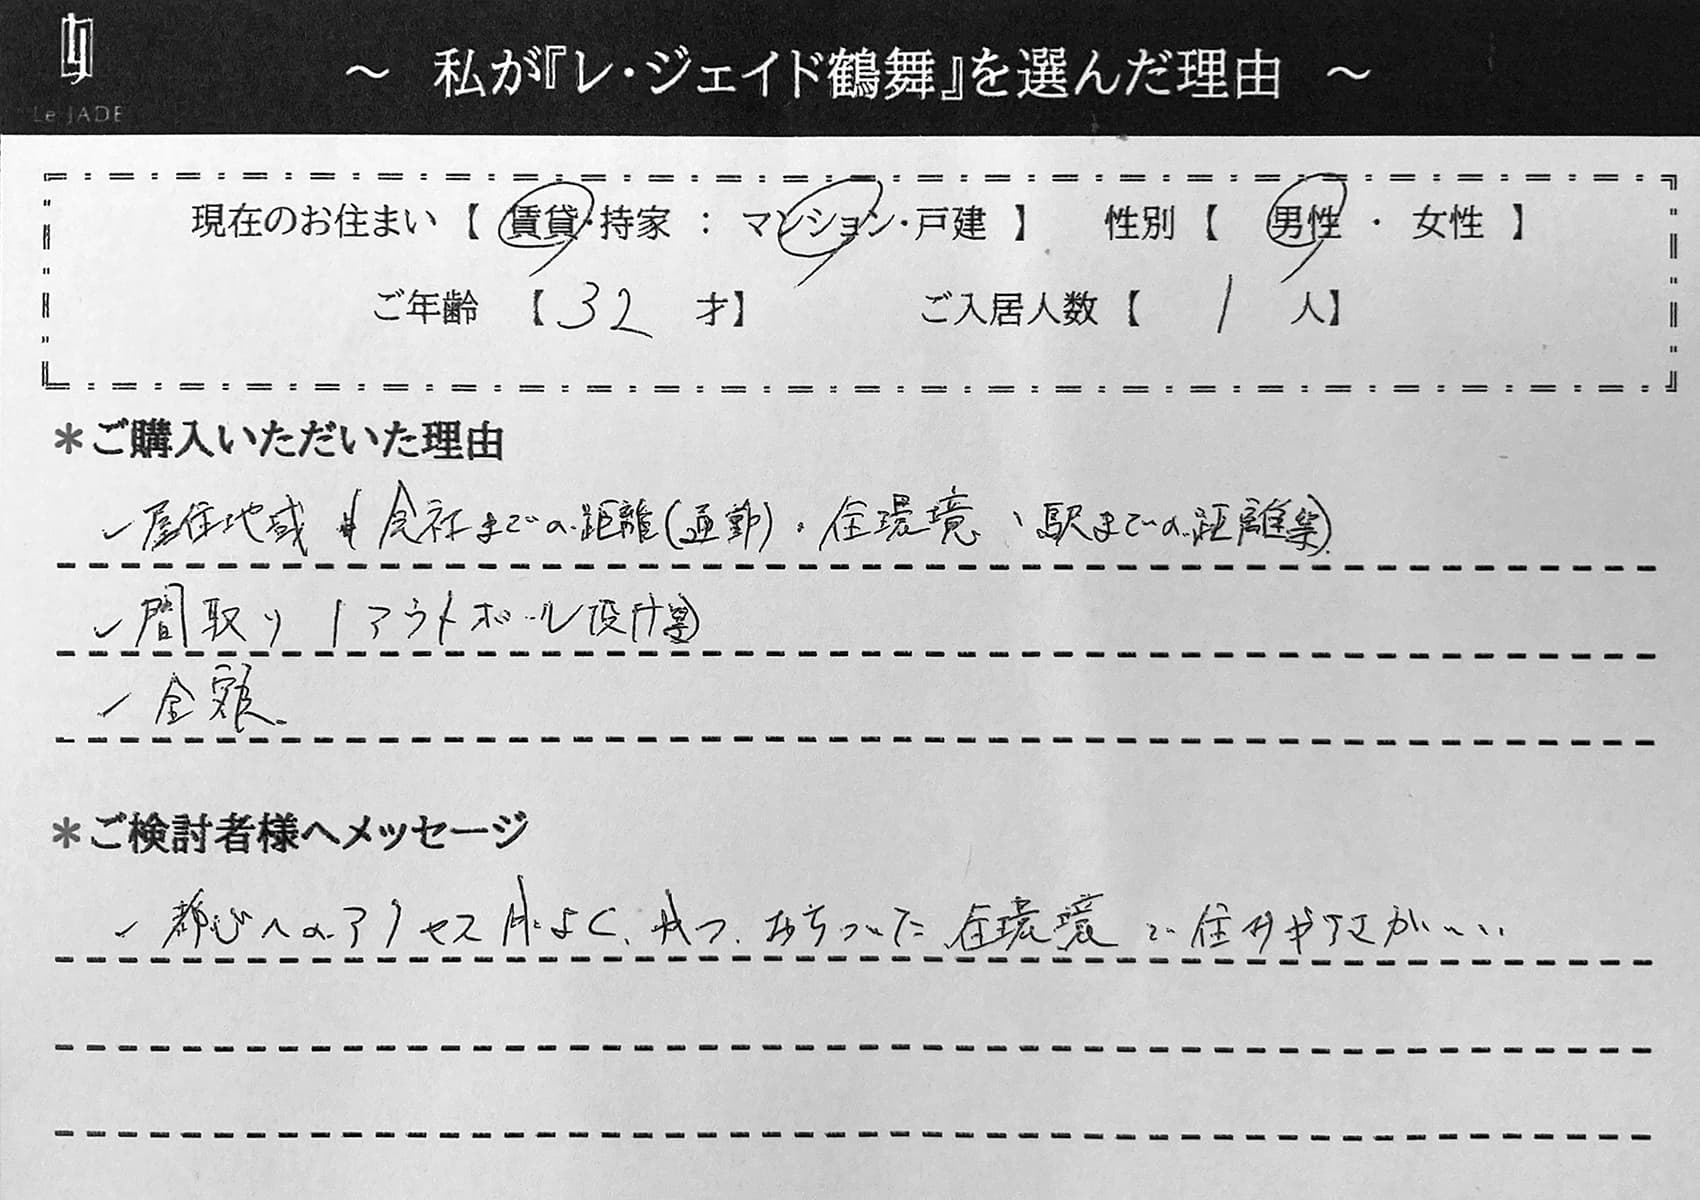 Le JADE
～ 私が『レ・ジェイド鶴舞』を選んだ理由 ～
現在のお住まい 【 賃貸・持家 ： マンション・戸建 】 性別 【 男性 ・ 女性 】
ご年齢 【 32 才】 ご入居人数【 1 人】
＊ご購入いただいた理由
✓居住地域 (会社までの距離(通勤)・住環境、駅までの距離等)
✓間取り (アウトポール設計等)
✓金額.
＊ご検討者様へメッセージ
✓都心へのアクセスもよく、且つ、おちついた住環境で住みやすさがいい